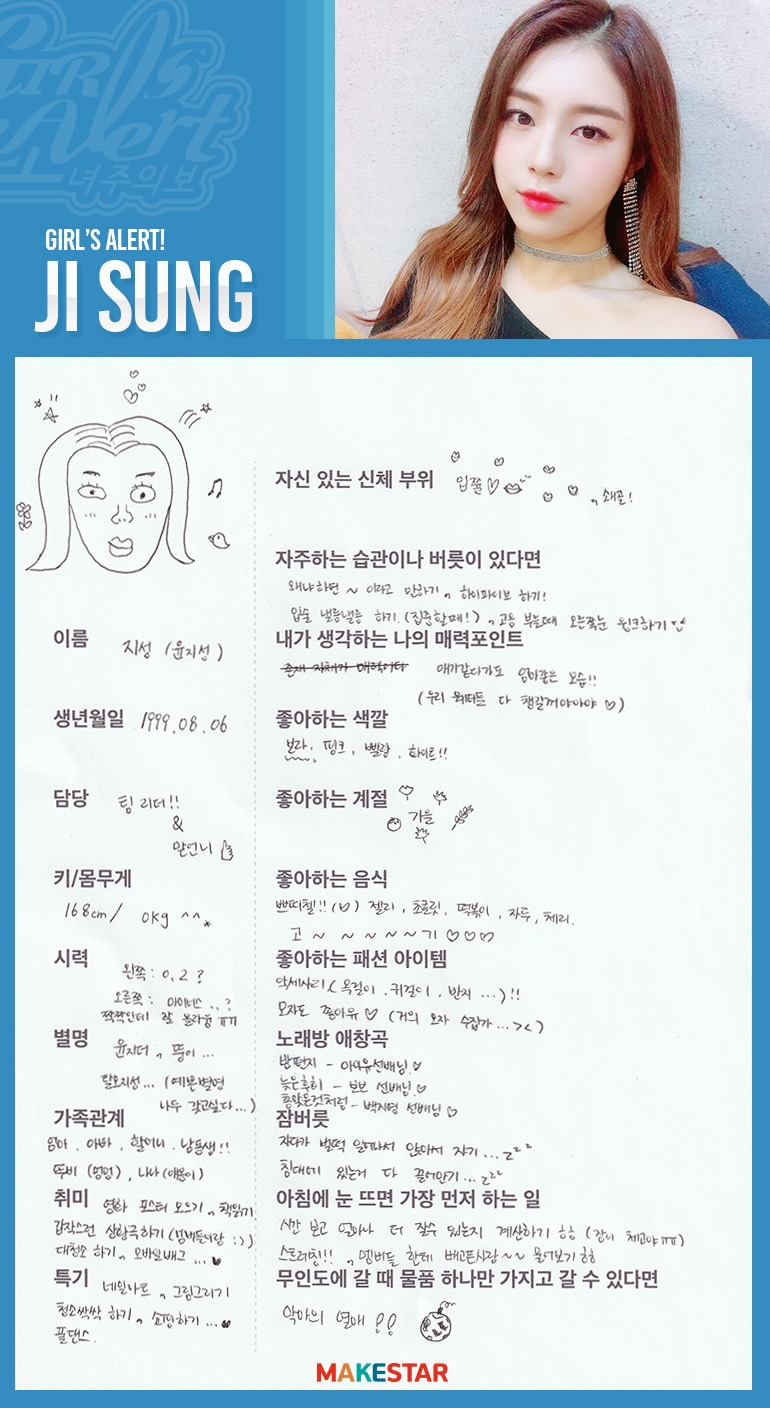 GIRL'S Alert
소녀주의보
GIRL'S ALERT!
JI SUNG
이름 지성 (윤지성)
생년월일 1999.08.06
담당 팀 리더!!
&
맏언니
키/몸무게
168cm/ 0kg ^^*
시력
왼쪽: 0.2?
오른쪽: 마이너스..?
짝짝인데 잘 몰라용 ㅠㅠ
별명 윤지더, 뚱이...
탈모지성... (예쁜별명
나두 갖고싶다...)
가족관계
엄마, 아빠, 할머니, 남동생!!
뚜비 (멍멍), 나나 (야옹이)
취미 영화 포스터 모으기, 책읽기
갑작스런 상황극하기 (멤버들이랑 :))
대청소 하기, 모바일배그 ...♥
특기 네일아트, 그림그리기
청소싹싹 하기, 쇼핑하기 ...♥
폴댄스.
자신 있는 신체 부위 입술♡ , 쇄골!
자주하는 습관이나 버릇이 있다면
왜냐하면 ~ 이라고 말하기, 하이파이브 하기!
입술 낼름낼름 하기. (집중할때!), 고음 부를때 오른쪽눈 윙크하기
내가 생각하는 나의 매력포인트
존재 자체가 매력이다 애기같다가도 엄마같은 모습!!
(우리 워터들 다 챙길꺼야아야 ♡)
좋아하는 색깔
보라, 핑크, 빨강, 화이트!!
좋아하는 계절
가을
좋아하는 음식
쁘띠첼!! (♡) 젤리, 초콜릿, 떡볶이, 자두, 체리.
고 ~ ~ ~ ~ ~ ~ 기 ♡♡♡
좋아하는 패션 아이템
악세사리 (목걸이, 귀걸이, 반지 ...)!!
모자도 좋아유 ♡ (거의 모자 수집가... ><)
노래방 애창곡
밤편지 - 아이유선배님♡
늦은후회 - 보보 선배님♡
총맞은것처럼 - 백지영 선배님♡
잠버릇
자다가 벌떡 일어나서 앉아서 자기...zzz
침대에 있는거 다 끌어안기...zzz
아침에 눈 뜨면 가장 먼저 하는 일
시간 보고 얼마나 더 잘수 있는지 계산하기 ㅎㅎ (잠이 체고야ㅠㅠ)
스트레칭!!, 멤버들 한테 배고픈사람~~ 물어보기 ㅎㅎ
무인도에 갈 때 물품 하나만 가지고 갈 수 있다면
악마의 열매 !?!?
MAKESTAR